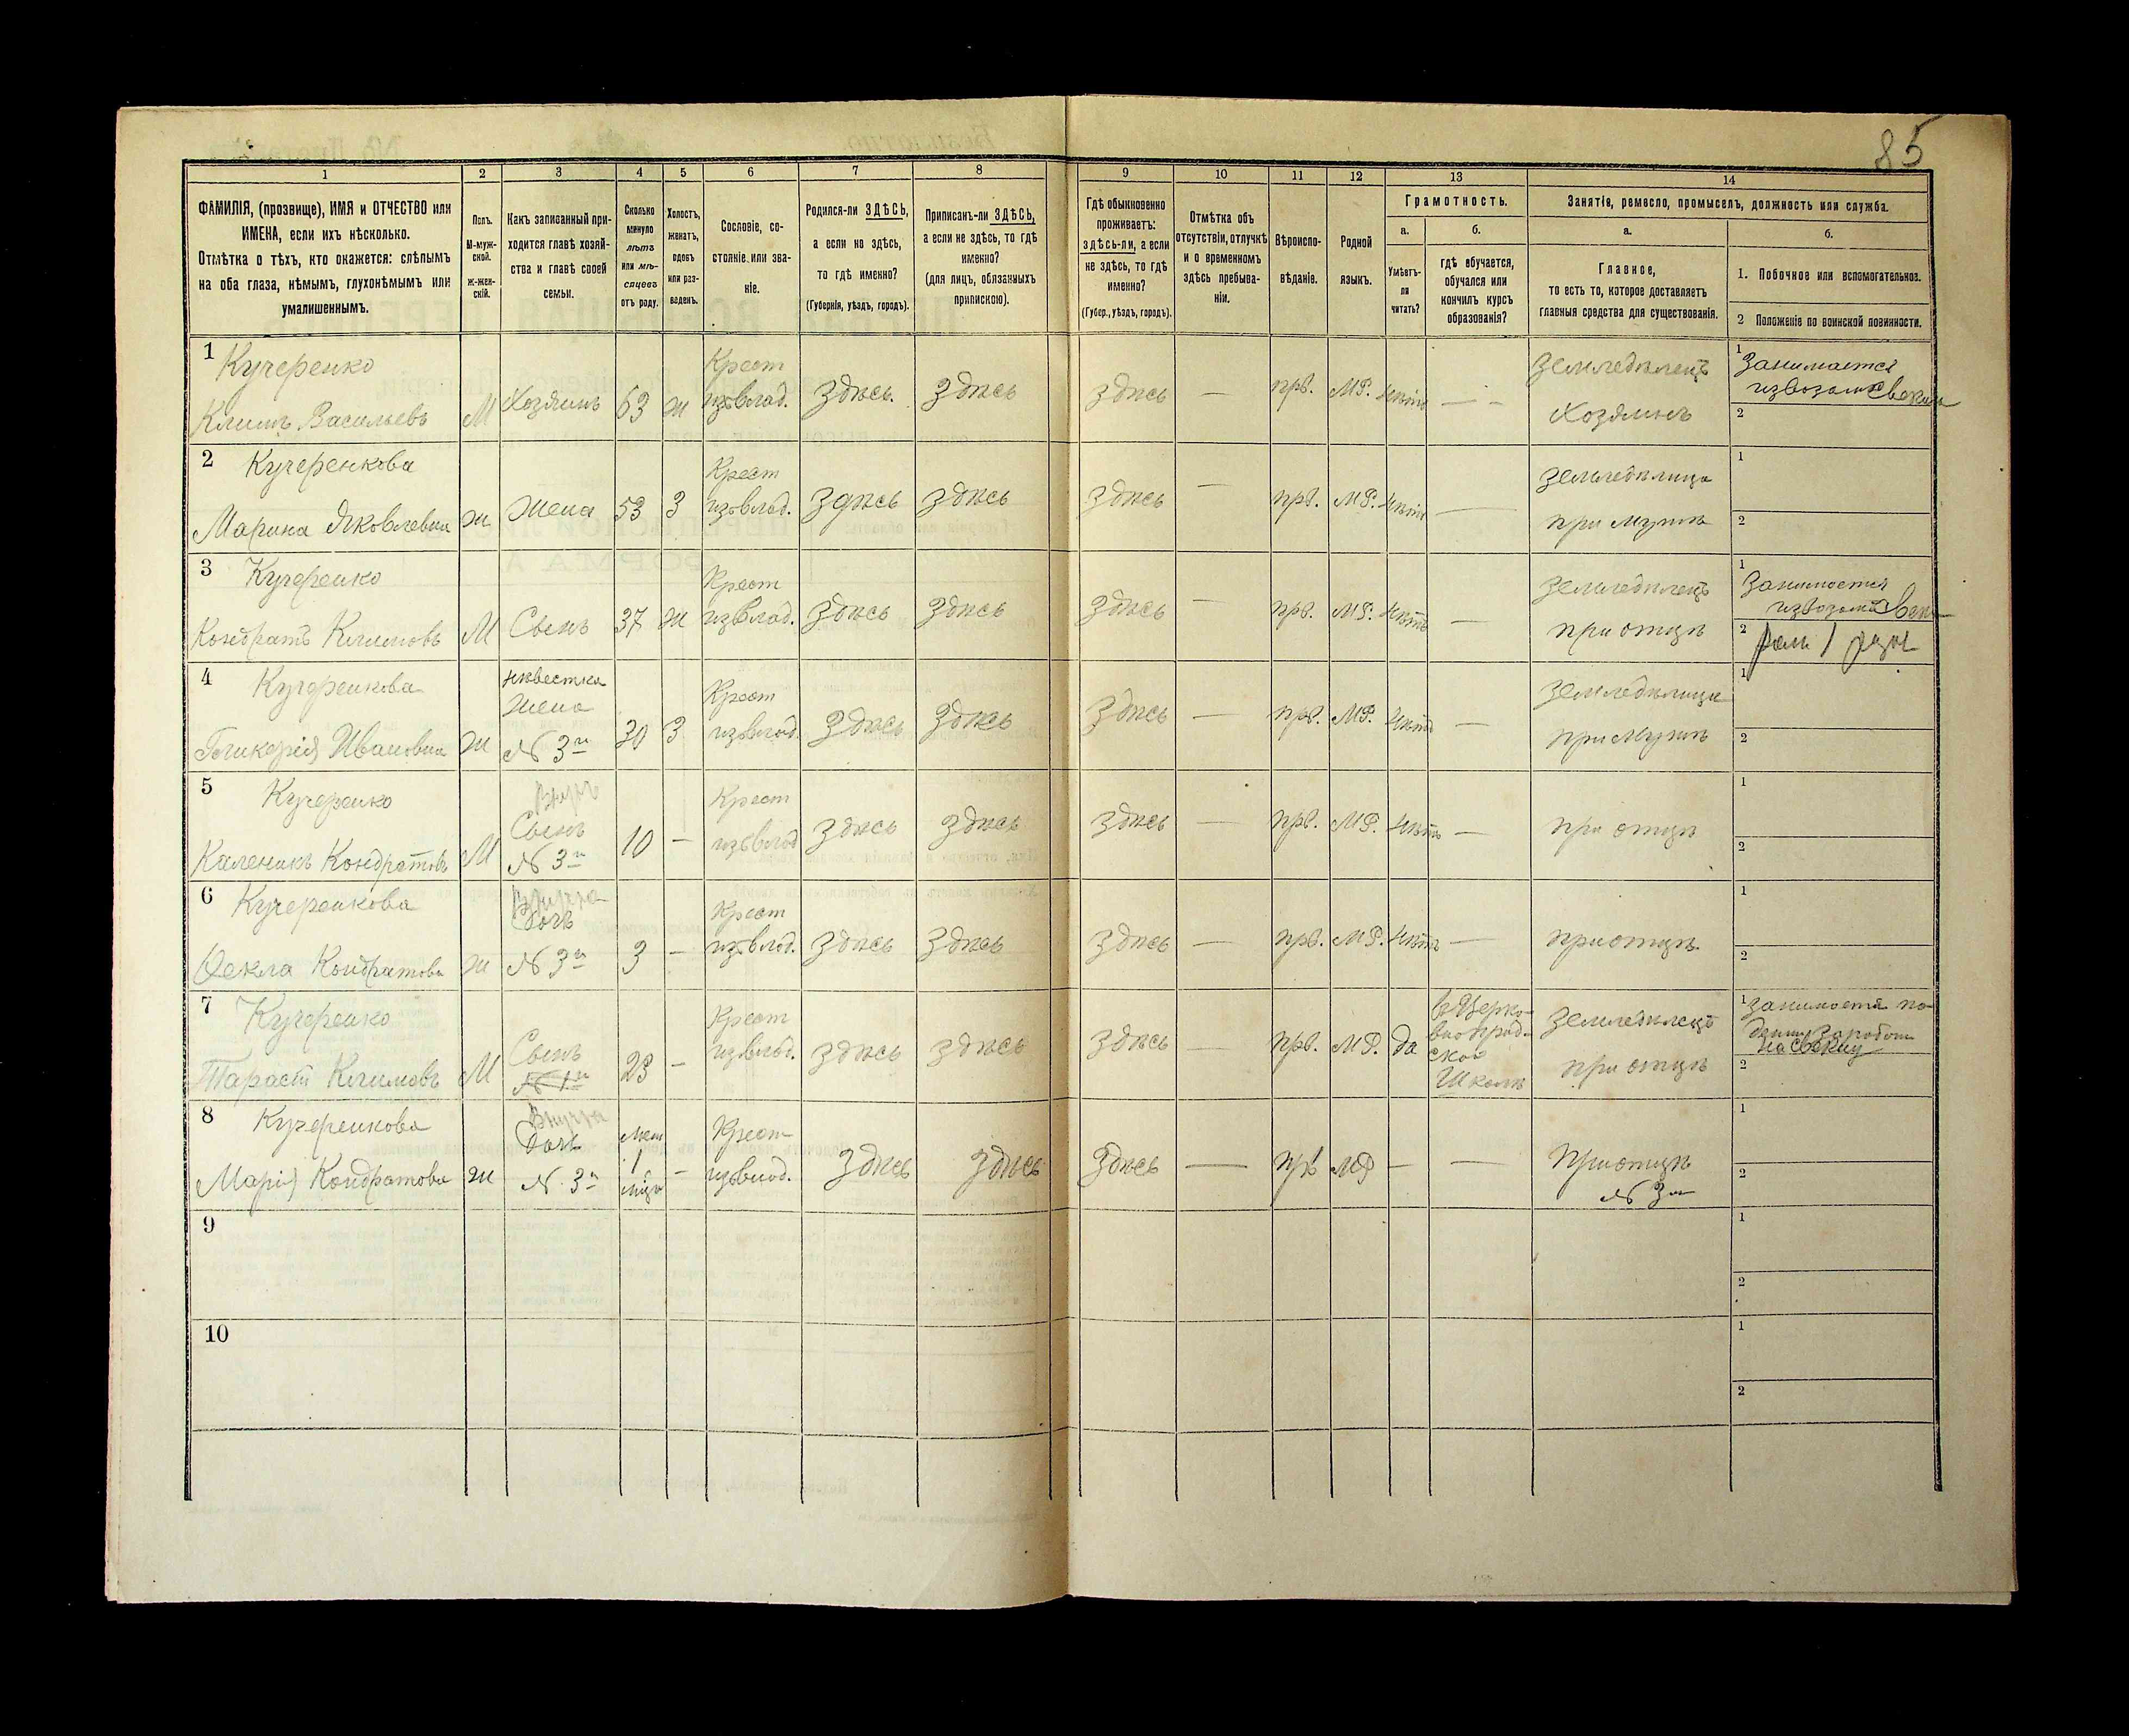 85
1 2 3 4 5 6 7 8 9 10 11 12 13 14
ФАМИЛІЯ, (прозвище), ИМЯ и ОТЧЕСТВО или
ИМЕНА, если ихъ нѣсколько.
Отмѣтка о тѣхъ, кто окажется: слѣпымъ
на оба глаза, нѣмымъ, глухонѣмымъ или
умалишеннымъ.
Полъ.
М-муж-
ской.
Ж-жен-
скій.
Какъ записанный при-
ходится главѣ хозяй-
ства и главѣ своей
семьи.
Сколько
минуло
лѣтъ
или мѣ-
сяцевъ
отъ роду.
Холостъ,
женатъ,
вдовъ
или раз-
веденъ.
Сословіе, со-
стояніе или зва-
ніе.
Родился-ли ЗДѢСЬ,
а если не здѣсь,
то гдѣ именно?
(Губернія, уѣздъ, городъ).
Приписанъ-ли ЗДѢСЬ,
а если не здѣсь, то гдѣ
именно?
(для лицъ, обязанныхъ
припискою).
Гдѣ обыкновенно
проживаетъ:
здѣсь-ли, а если
не здѣсь, то гдѣ
именно?
(Губер., уѣздъ, городъ).
Отмѣтка объ
отсутствіи, отлучкѣ
и о временномъ
здѣсь пребыва-
ніи.
Вѣроиспо-
вѣданіе.
Родной
языкъ.
Грамотность.
а.
Умѣетъ-
ли
читать?
б.
гдѣ обучается,
обучался или
кончилъ курсъ
образованія?
Занятіе, ремесло, промыселъ, должность или служба.
а.
Главное,
то есть то, которое доставляетъ
главныя средства для существованія.
б.
1. Побочное или вспомогательное.
2 Положеніе по воинской повинности.
1 Кучеренко
Климъ Васильевъ
М
Хозяинъ
63
ж
Крест
изъ влад.
Здѣсь.
Здѣсь
Здѣсь
—
прв.
МР.
нѣтъ
—
Земледѣлецъ
Хозяинъ
1 Занимается
извозом
2
2 Кучеренкова
Марина Яковлевна
ж
Жена
53
З
Крест
изъ влад.
Здѣсь
Здѣсь
Здѣсь
—
прв.
МР.
нѣтъ
—
Земледѣлица
при мужѣ
1
2
3 Кучеренко
Кондратъ Климовъ
М
Сынъ
37
ж
Крест
изъ влад.
Здѣсь
Здѣсь
Здѣсь
—
прв.
МР.
нѣтъ
—
Земледѣлецъ
при отцѣ
1 Занимается
извозомъ
2
4 Кучеренкова
Гликерія Ивановна
ж
невѣстка
Жена
№ 3й
30
З
Крест
изъ влад.
Здѣсь
Здѣсь
Здѣсь
—
прв.
МР.
нѣтъ
—
Земледѣлица
при мужѣ
1
2
5 Кучеренко
Каленикъ Кондратовъ
М
Внукъ
Сынъ
№ 3й
10
—
Крест
изъ влад
Здѣсь
Здѣсь
Здѣсь
—
прв.
МР.
нѣтъ
—
при отцѣ
1
2
6 Кучеренкова
Ѳекла Кондратова
ж
Внучка
Дочь
№ 3й
3
—
Крест
изъ влад.
Здѣсь
Здѣсь
Здѣсь
—
прв.
МР.
нѣтъ
—
при отцѣ.
1
2
7 Кучеренко
Тарасъ Климовъ
М
Сынъ
№ 1й
23
—
Крест
изъ влад.
Здѣсь
Здѣсь
Здѣсь
—
прв.
МР.
да
въ Церко-
вно прид-
ской
Школѣ
Земледѣлецъ
при отцѣ
1 Занимается по-
2
8 Кучеренкова
Марія Кондратова
ж
Внучка
Дочь
№ 3й
1
—
Крест
изъ влад.
Здѣсь
Здѣсь
Здѣсь
—
прв
МР
—
—
При отцѣ
№ 3м
1
2
9
1
2
10
1
2